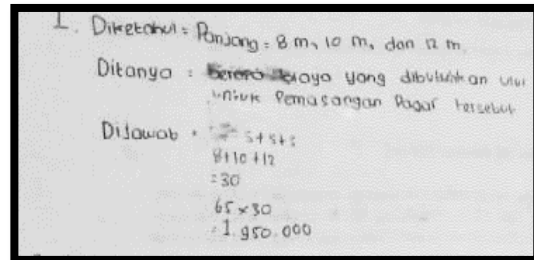 1. Diketahui = Panjang = 8 m, 10 m, dan 12 m.
Ditanya : Berapa biaya yang dibutuhkan
untuk Pemasangan Pagar tersebut
Dijawab : s+s+s
8+10+12
=30
65 x 30
=1.950.000